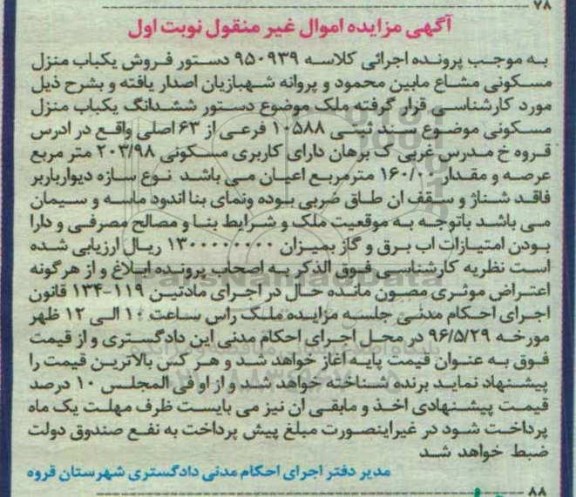 ۷۸
آگهی مزایده اموال غیر منقول نوبت اول
به موجب پرونده اجرائی کلاسه ۹۵۰۹۳۹ دستور فروش یکباب منزل
مسکونی مشاع مابین محمود و پروانه شهبازیان اصدار یافته و بشرح ذیل
مورد کارشناسی قرار گرفته ملک موضوع دستور ششدانگ یکباب منزل
مسکونی موضوع سند ثبتی ۱۰۵۸۸ فرعی از ۶۳ اصلی واقع در ادرس
قروه خ مدرس غربی ک برهان دارای کاربری مسکونی ۲۰۳/۹۸ متر مربع
عرصه و مقدار ۱۶۰/۰۰ مترمربع اعیان می باشد نوع سازه دیوارباربر
فاقد شناژ و سقف ان طاق ضربی بوده ونمای بنا اندود ماسه و سیمان
می باشد باتوجه به موقعیت ملک و شرایط بنا و مصالح مصرفی و دارا
بودن امتیازات اب برق و گاز بمیزان ۱۳۰۰۰۰۰۰۰۰ ریال ارزیابی شده
است نظریه کارشناسی فوق الذکر به اصحاب پرونده ابلاغ و از هرگونه
اعتراض موثری مصون مانده حال در اجرای مادتین ۱۱۹-۱۳۴ قانون
اجرای احکام مدنی جلسه مزایده ملک راس ساعت ۱۰ الی ۱۲ ظهر
مورخه ۹۶/۵/۲۹ در محل اجرای احکام مدنی این دادگستری و از قیمت
فوق به عنوان قیمت پایه آغاز خواهد شد و هر کس بالاترین قیمت را
پیشنهاد نماید برنده شناخته خواهد شد و از او فی المجلس ۱۰ درصد
قیمت پیشنهادی اخذ و مابقی ان نیز می بایست ظرف مهلت یک ماه
پرداخت شود در غیراینصورت مبلغ پیش پرداخت به نفع صندوق دولت
ضبط خواهد شد
مدیر دفتر اجرای احکام مدنی دادگستری شهرستان قروه
۸۸